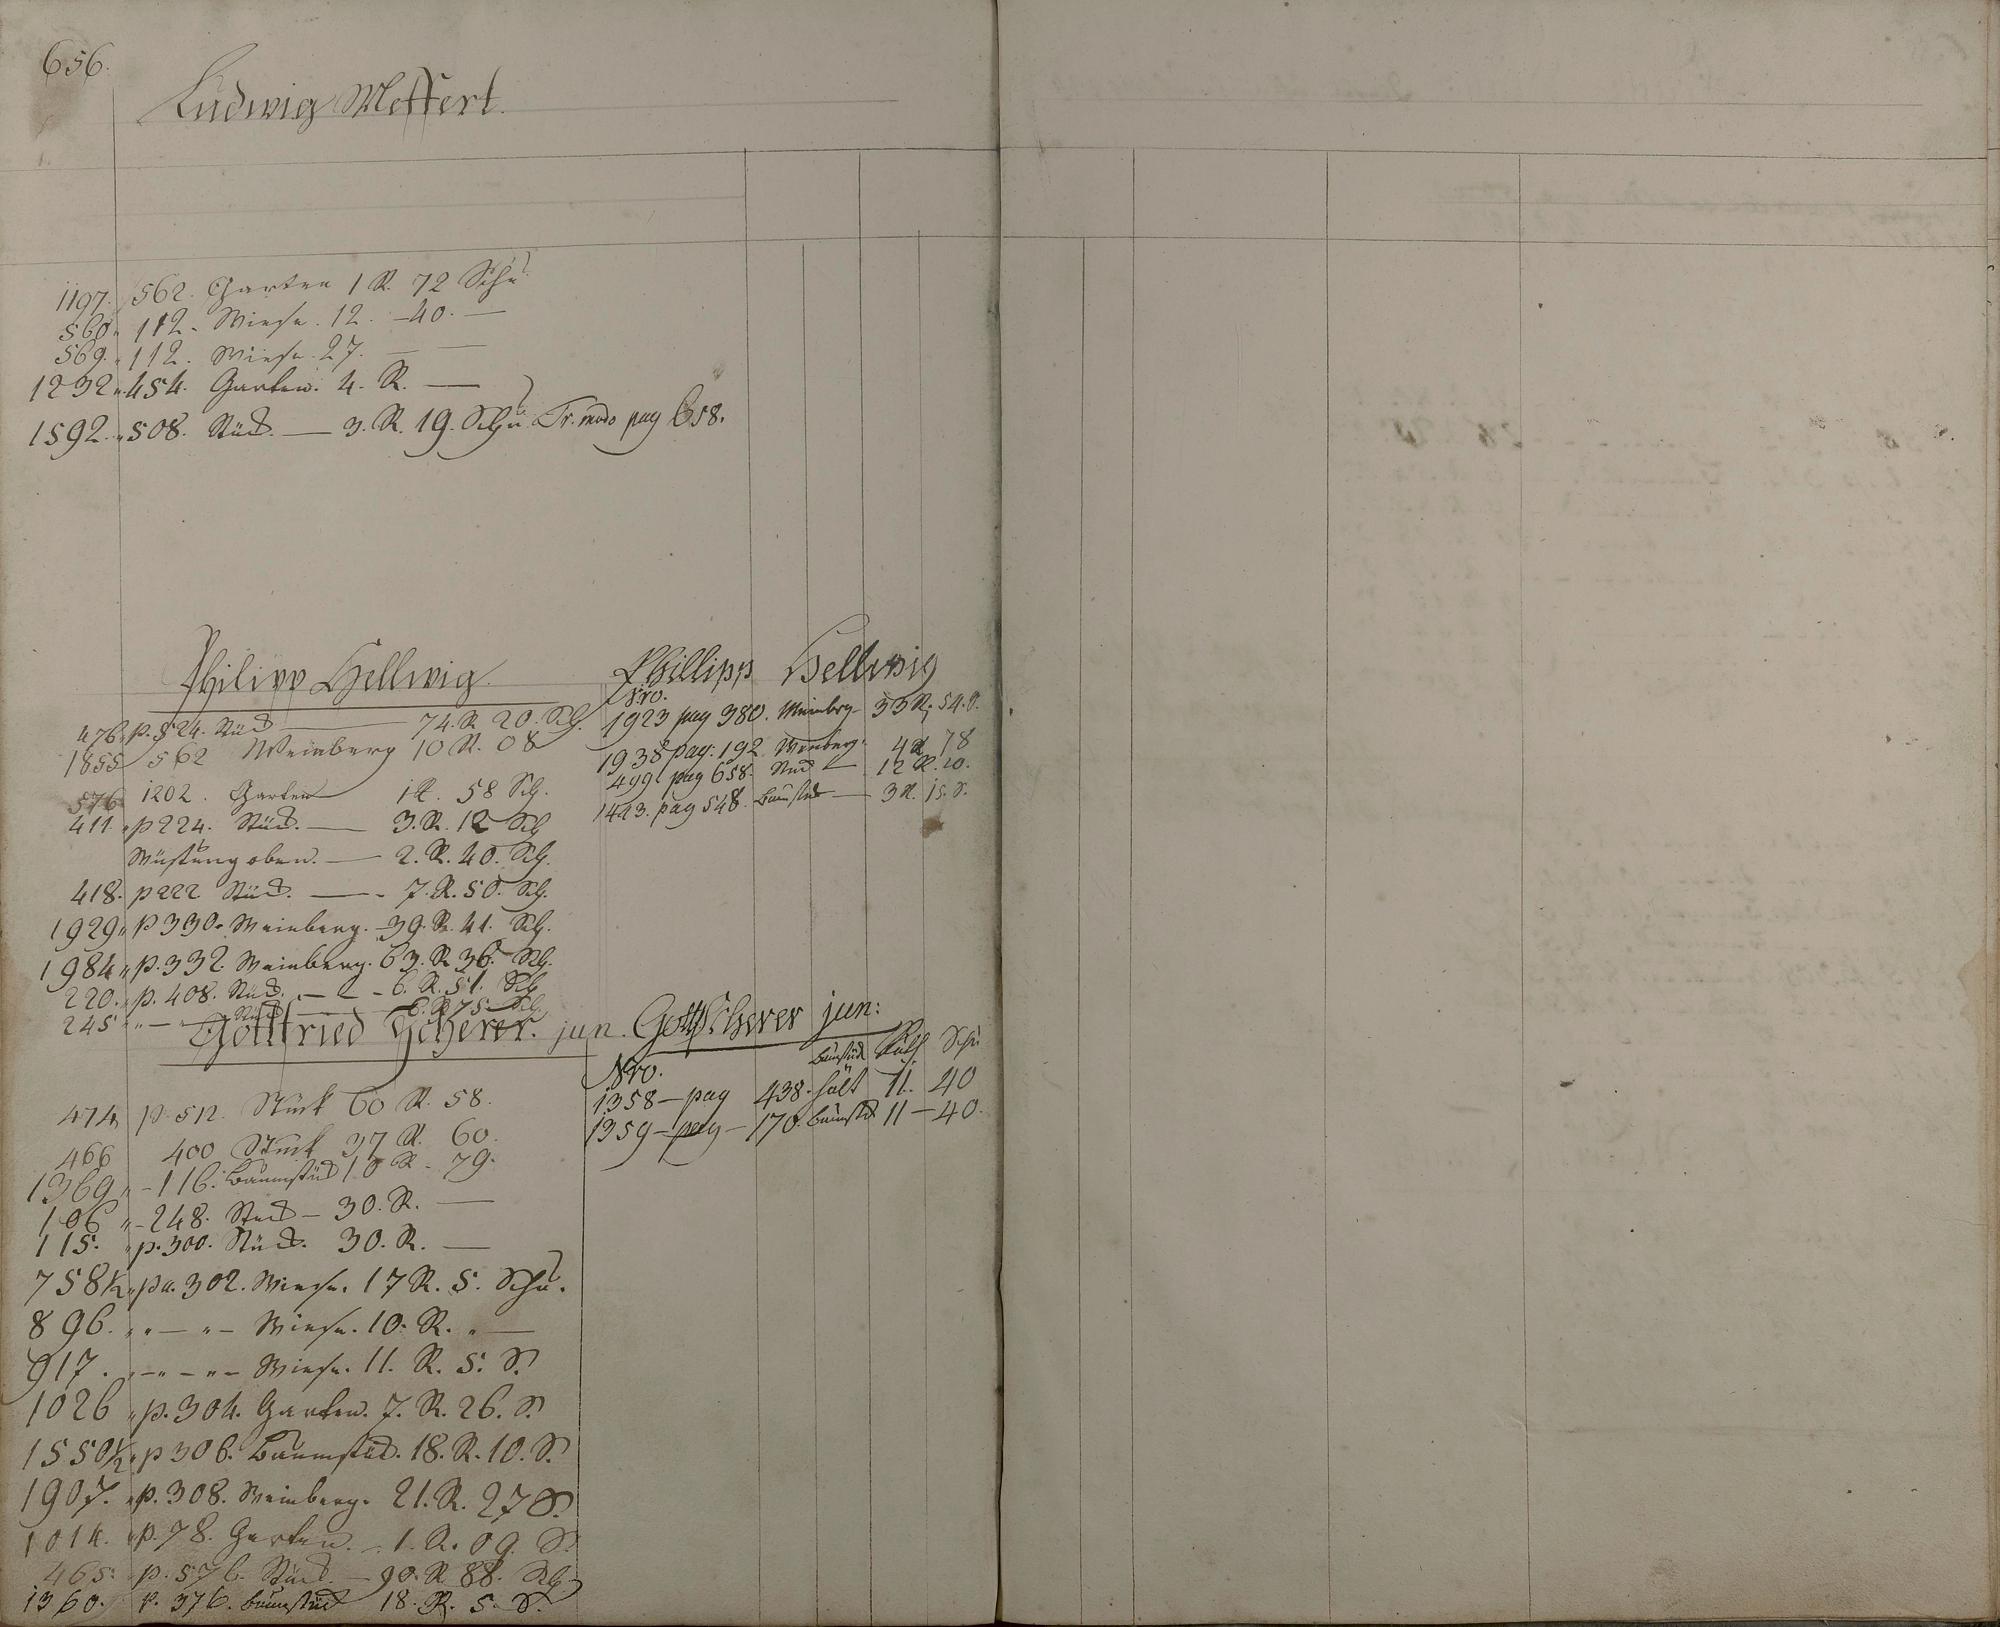 656.
Ludwig Meffert.
1197. 562. Garten 1 R. 72 Schu
560. " 112. Wiese. 12. - 40. —
569. " 112. Wiese. 27. — —
1232 " 454. Garten. 4. R. —
1592. " 508. Stück. — 3. R. 19. Schu. Tr. modo pag 658.
Philipp Hellwig
476. p. 524. Stück — 74. R. 20. Sch.
1855 562 Weinberg 10 R. 08
576 1202. Garten 1 R. 58 Sch.
411. " p 224. Stück. — 3. R. 12 Sch
Wüstung oben. — 2. R. 40. Sch.
418. p 222 Stück. — 7. R. 50. Sch.
1929 " p 330. Weinberg. — 39. R. 41. Sch.
1984 " p. 332. Weinberg. 63. R. 36. Sch.
220. " p. 408. Stück. — 6. R. 51. Sch
245 " — Stück — 6. R. 75. Sch.
Phillipp Hellwig
Nro.
1923 pag 380. Weinberg — 33 R. 54. S.
1938 pag. 192 Weinberg. 4 R 78
499. pag 658. Stück — 12 R. 20.
1423. pag 548. Baumstück — 3 R. 15. S.
Gottfried Scherer. jun.
474 p. 512. Stück 60 R. 58.
466 400 Stück 37 R. 60.
1369 " — 116. Baumstück 10 R. 79.
106 " — 248. Stück — 30. R. —
115. " p. 300. Stück. 30. R. —
758½ " pa. 302. Wiese. 17 R. 5. Schu.
896. " " — " — Wiese. 10. R. " —
917. " — " — " — Wiese. 11. R. 5. S.
1026 " p. 304. Garten. 7. R. 26. S.
1550½ " p 306. Baumstück. 18. R. 10. S.
1907. " p. 308. Weinberg. 21. R. 27 S.
1014. " p. 78. Garten. — 1. R. 09. S.
465. p. 576. Stück — 90. R 88. Sch.
1360. p. 376. Baumstück 18. R. 5. S.
Gottf Scherer jun:
Nro. Baumstück Ruth Schu
1358 — pag 438. hält 11. 40
1359 — pag — 170. Baumstück 11 — 40.